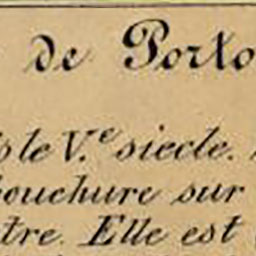 de Porto
s le V.e siecle.
bouchure sur
tre. Elle est